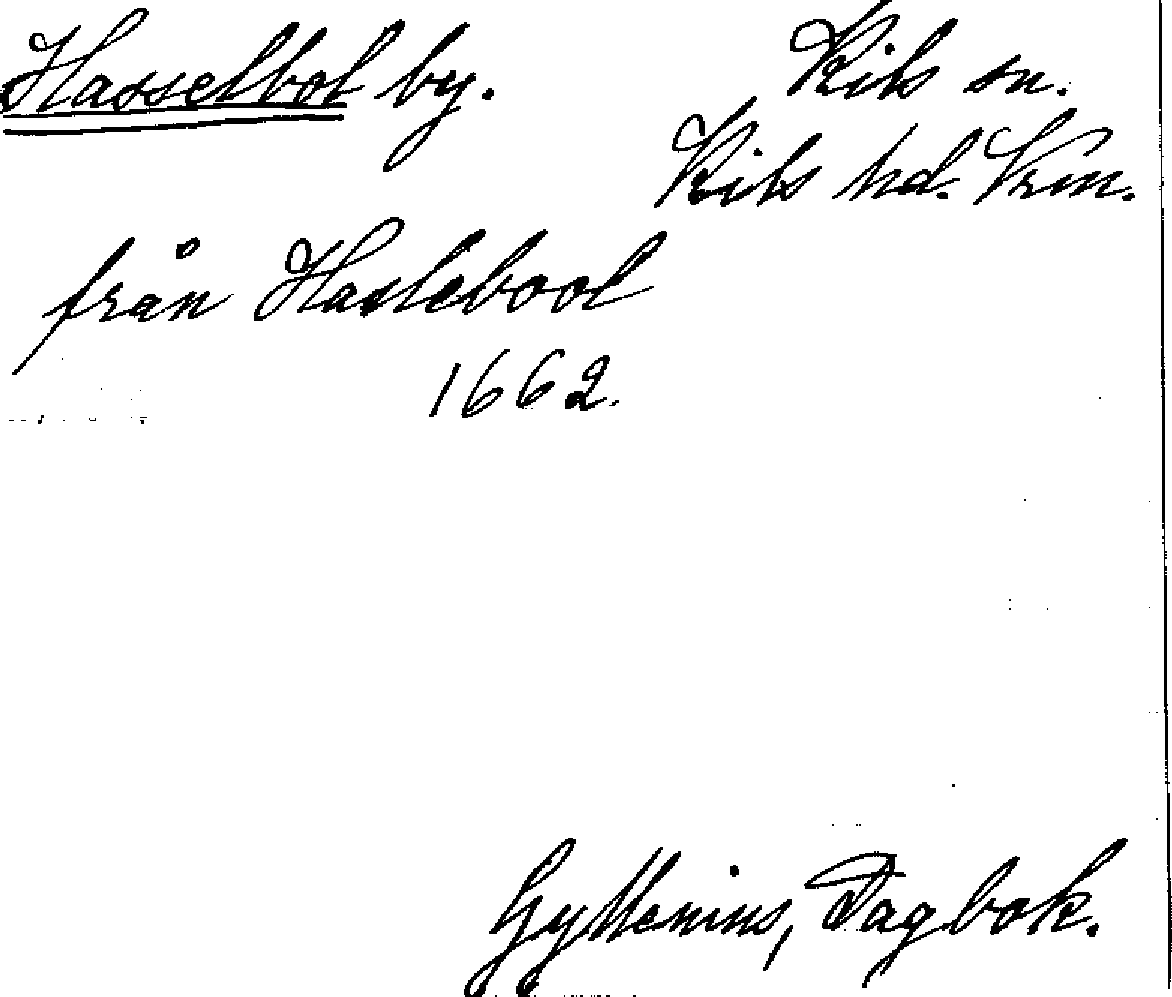 Hasselbol by.
Kils sn.
Kils hd. Vrm.
från Haslebool
1662.
Gyllenius, Dagbok.